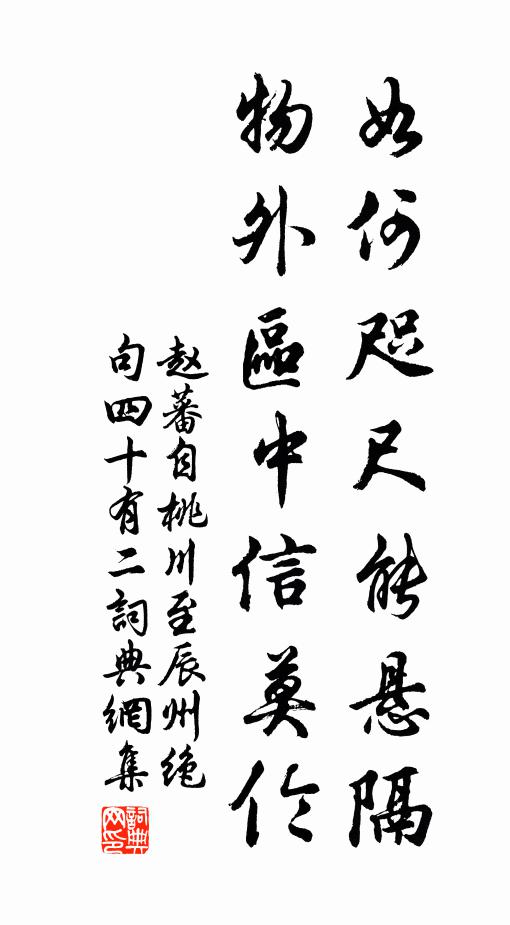 如何咫尺能悬隔
物外區中信莫伦
赵蕃自桃川至辰州绝
句四十有二詞典網集
詞典网印